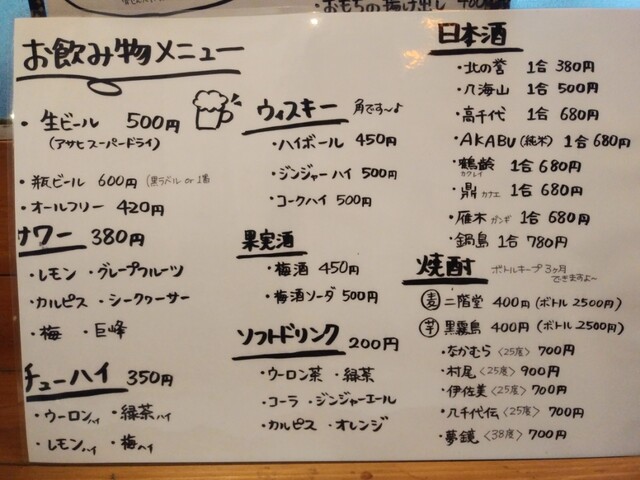 ・おもちの揚げ出し 400
お飲み物メニュー
・生ビール 500円
(アサヒスーパードライ)
・瓶ビール 600円 (黒ラベル or 1番
・オールフリー 420円
サワー 380円
・レモン ・グレープフルーツ
・カルピス ・シークヮーサー
・梅 ・巨峰
チューハイ 350円
・ウーロンハイ ・緑茶ハイ
・レモンハイ ・梅ハイ
ウィスキー 角です〜よ
・ハイボール 450円
・ジンジャーハイ 500円
・コークハイ 500円
果実酒
・梅酒 450円
・梅酒ソーダ 500円
ソフトドリンク 200円
・ウーロン茶 ・緑茶
・コーラ ・ジンジャーエール
・カルピス ・オレンジ
日本酒
・北の誉 1合 380円
・八海山 1合 500円
・高千代 1合 680円
・AKABU(純米) 1合 680円
・鶴齢 カクレイ 1合 680円
・鼎 カナエ 1合 680円
・雁木 ガンギ 1合 680円
・鍋島 1合 780円
焼酎 ボトルキープ 3ヶ月
できますよ〜
麦 二階堂 400円 (ボトル 2500円)
芋 黒霧島 400円 (ボトル 2500円)
・なかむら 〈25度〉 700円
・村尾 〈25度〉 900円
・伊佐美 〈25度〉 700円
・八千代伝 〈25度〉 700円
・夢鏡 〈38度〉 700円